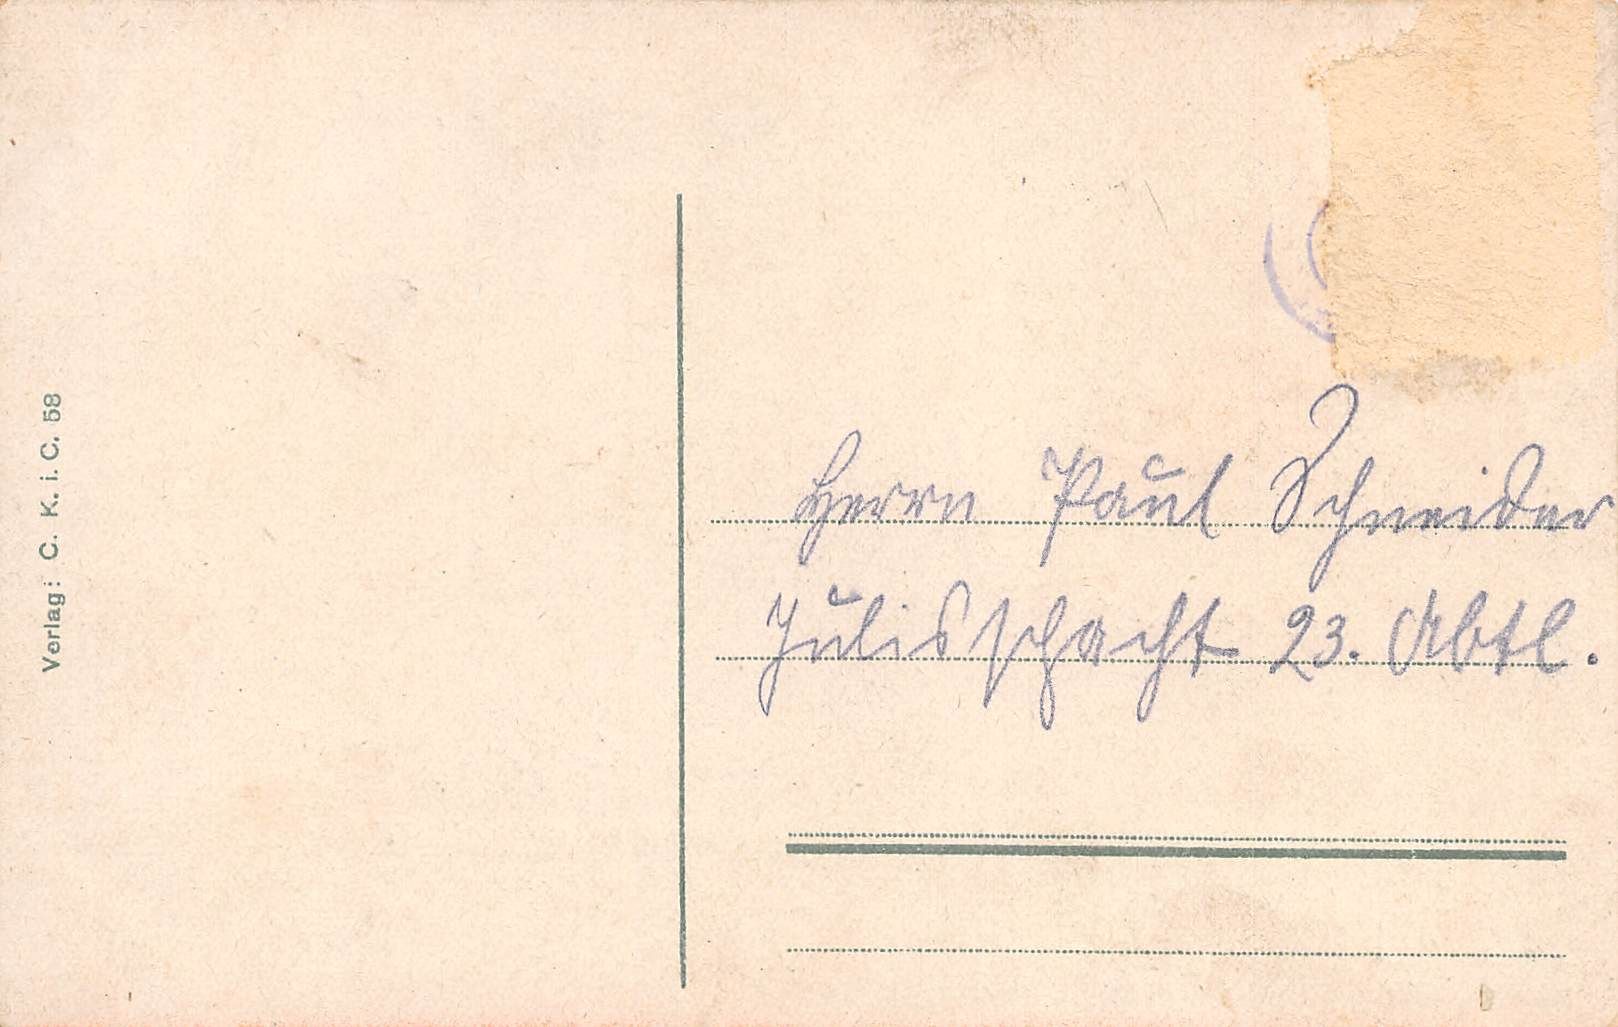 Verlag: C. K. i. C. 58
Herrn Paul Schneider
Julisschacht 23. Abtl.